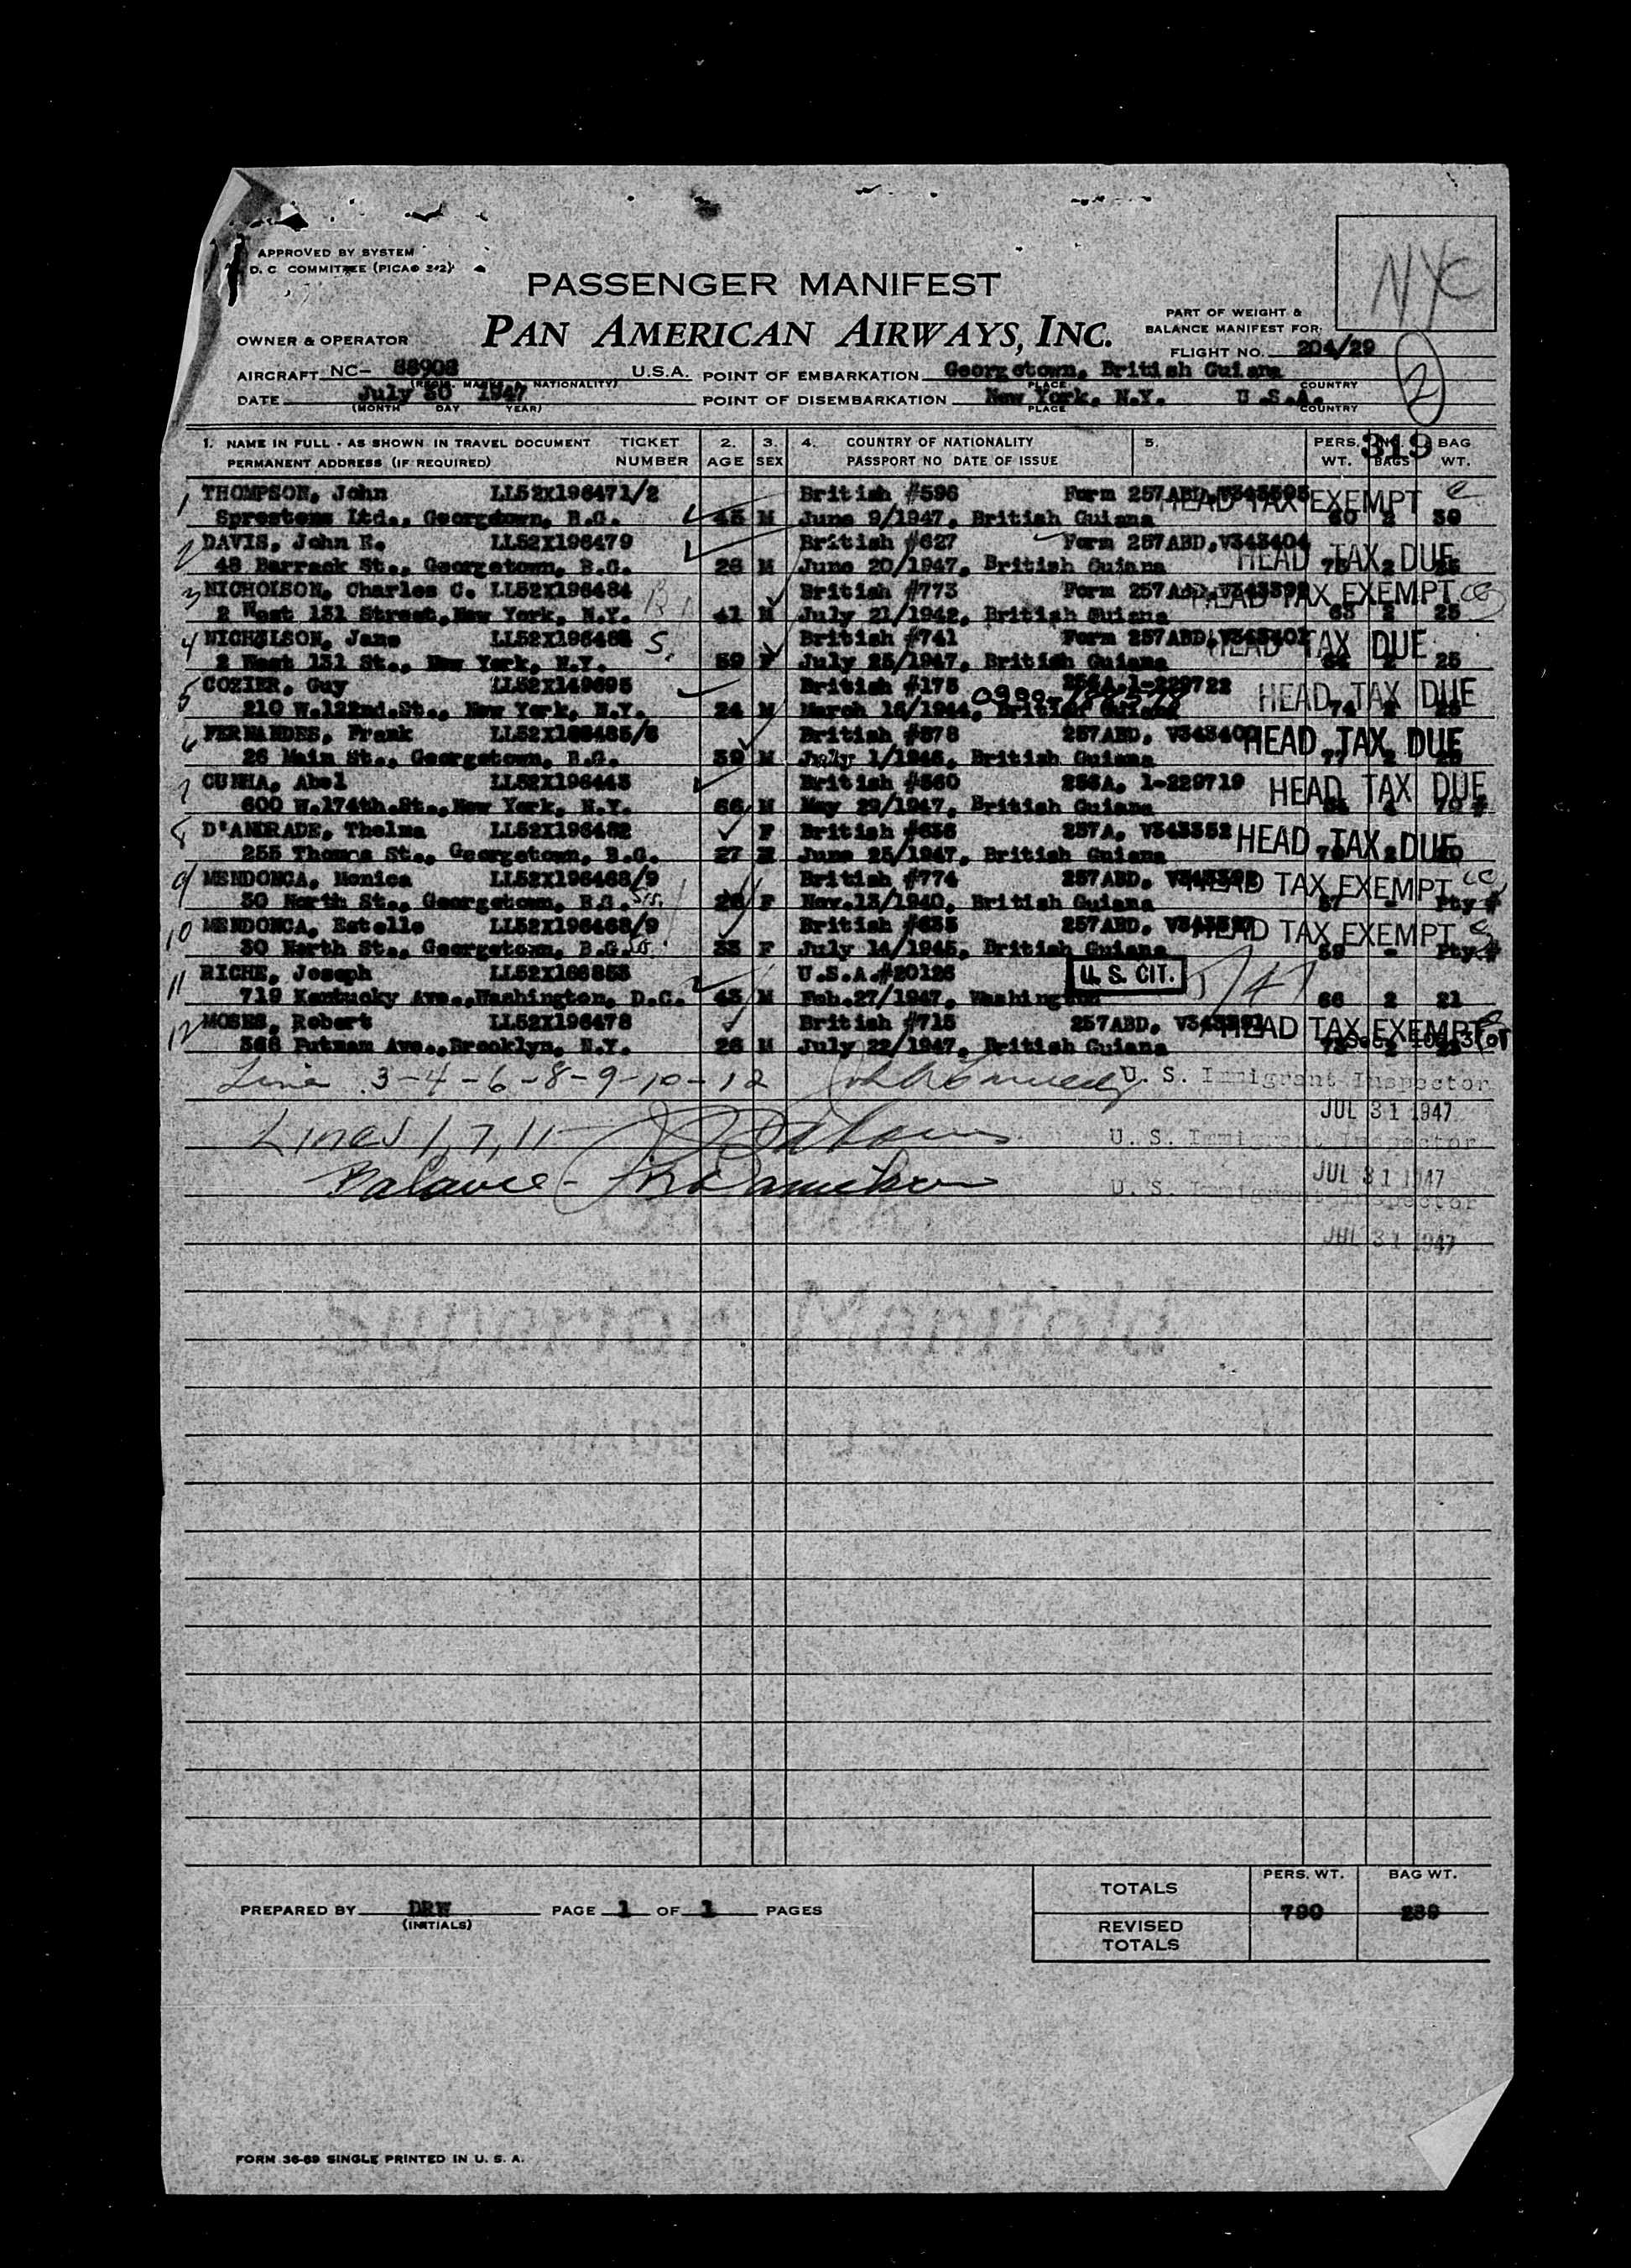 APPROVED BY SYSTEM
D. C. COMMITTEE (PICAO 2-2)
NYC
PASSENGER MANIFEST
PART OF WEIGHT &
BALANCE MANIFEST FOR:
OWNER & OPERATOR PAN AMERICAN AIRWAYS, INC.
FLIGHT NO. 204/29
AIRCRAFT NC- 88908 U.S.A. POINT OF EMBARKATION Georgetown, British Guiana
NATIONALITY) PLACE COUNTRY
2
DATE July 30 1947 POINT OF DISEMBARKATION New York, N.Y. U.S.A.
(MONTH DAY YEAR) PLACE COUNTRY
1. NAME IN FULL - AS SHOWN IN TRAVEL DOCUMENT TICKET 2. 3. 4. COUNTRY OF NATIONALITY 5. PERS. 319 BAG
PERMANENT ADDRESS (IF REQUIRED) NUMBER AGE SEX PASSPORT NO DATE OF ISSUE WT. BAGS WT.
1 THOMPSON, John LL52X196471/2 British #596 Form 257ABD, HEAD TAX EXEMPT
Sprostons Ltd., Georgetown, B.G. 45 M June 9/1947, British Guiana 60 2 30
2 DAVIS, John E. LL52X196479 British #627 Form 257ABD, V343404
48 Barrack St., Georgetown, B.G. 28 M June 20/1947, British Guiana HEAD TAX DUE 2
3 NICHOLSON, Charles C. LL52X196484 British #773 Form 257ABD, HEAD TAX EXEMPT
2 West 131 Street, New York, N.Y. 41 M July 21/1942, British Guiana 63 2 25
4 NICHOLSON, Jane S. British #741 Form 257ABD, HEAD TAX DUE
2 West 131 St., New York, N.Y. 39 F July 25/1947, British Guiana 2 25
5 COZIER, Guy LL52X149695 British #175 256A, 1-229722 HEAD TAX DUE
210 W.122nd.St., New York, N.Y. 24 M March 16/1944, British Guiana 74
6 FERNANDES, Frank British #878 257ABD, HEAD TAX DUE
26 Main St., Georgetown, B.G. 39 M July 1/1946, British Guiana 77
7 CUNHA, Abel LL52X196443 British #560 256A, 1-229719 HEAD TAX DUE
600 W.174th.St., New York, N.Y. 66 M May 29/1947, British Guiana
8 D'ANDRADE, Thelma LL52X196482 F British #636 257A, V343352 HEAD TAX DUE
255 Thomas St., Georgetown, B.G. 27 June 25/1947, British Guiana
9 MENDONCA, Monica LL52X196468/9 British #774 257ABD, HEAD TAX EXEMPT
30 North St., Georgetown, B.G. 26 F Nov.13/1940, British Guiana 57 - Pty #
10 MENDONCA, Estelle LL52X196468/9 British #635 257ABD, HEAD TAX EXEMPT
30 North St., Georgetown, B.G. 33 F July 14/1945, British Guiana 59 - Pty #
11 RICHE, Joseph LL52X166853 U.S.A.#20126 U. S. CIT.
719 Kentucky Ave., Washington, D.C. 43 M Feb.27/1947, Washington 66 2 21
12 MOSES, Robert LL52X196478 British #715 257ABD, HEAD TAX EXEMPT
366 Putnam Ave., Brooklyn, N.Y. 26 M July 22/1947, British Guiana
Line 3-4-6-8-9-10-12 U. S. Immigrant Inspector
JUL 31 1947
Lines 1, 7, 11 U. S. Immigrant Inspector
JUL 31 1947
Balance - U. S. Immigrant Inspector
JUL 31 1947
TOTALS PERS. WT. BAG WT.
PREPARED BY DRW PAGE 1 OF 1 PAGES
(INITIALS)
790 289
REVISED
TOTALS
FORM 36-69 SINGLE PRINTED IN U. S. A.